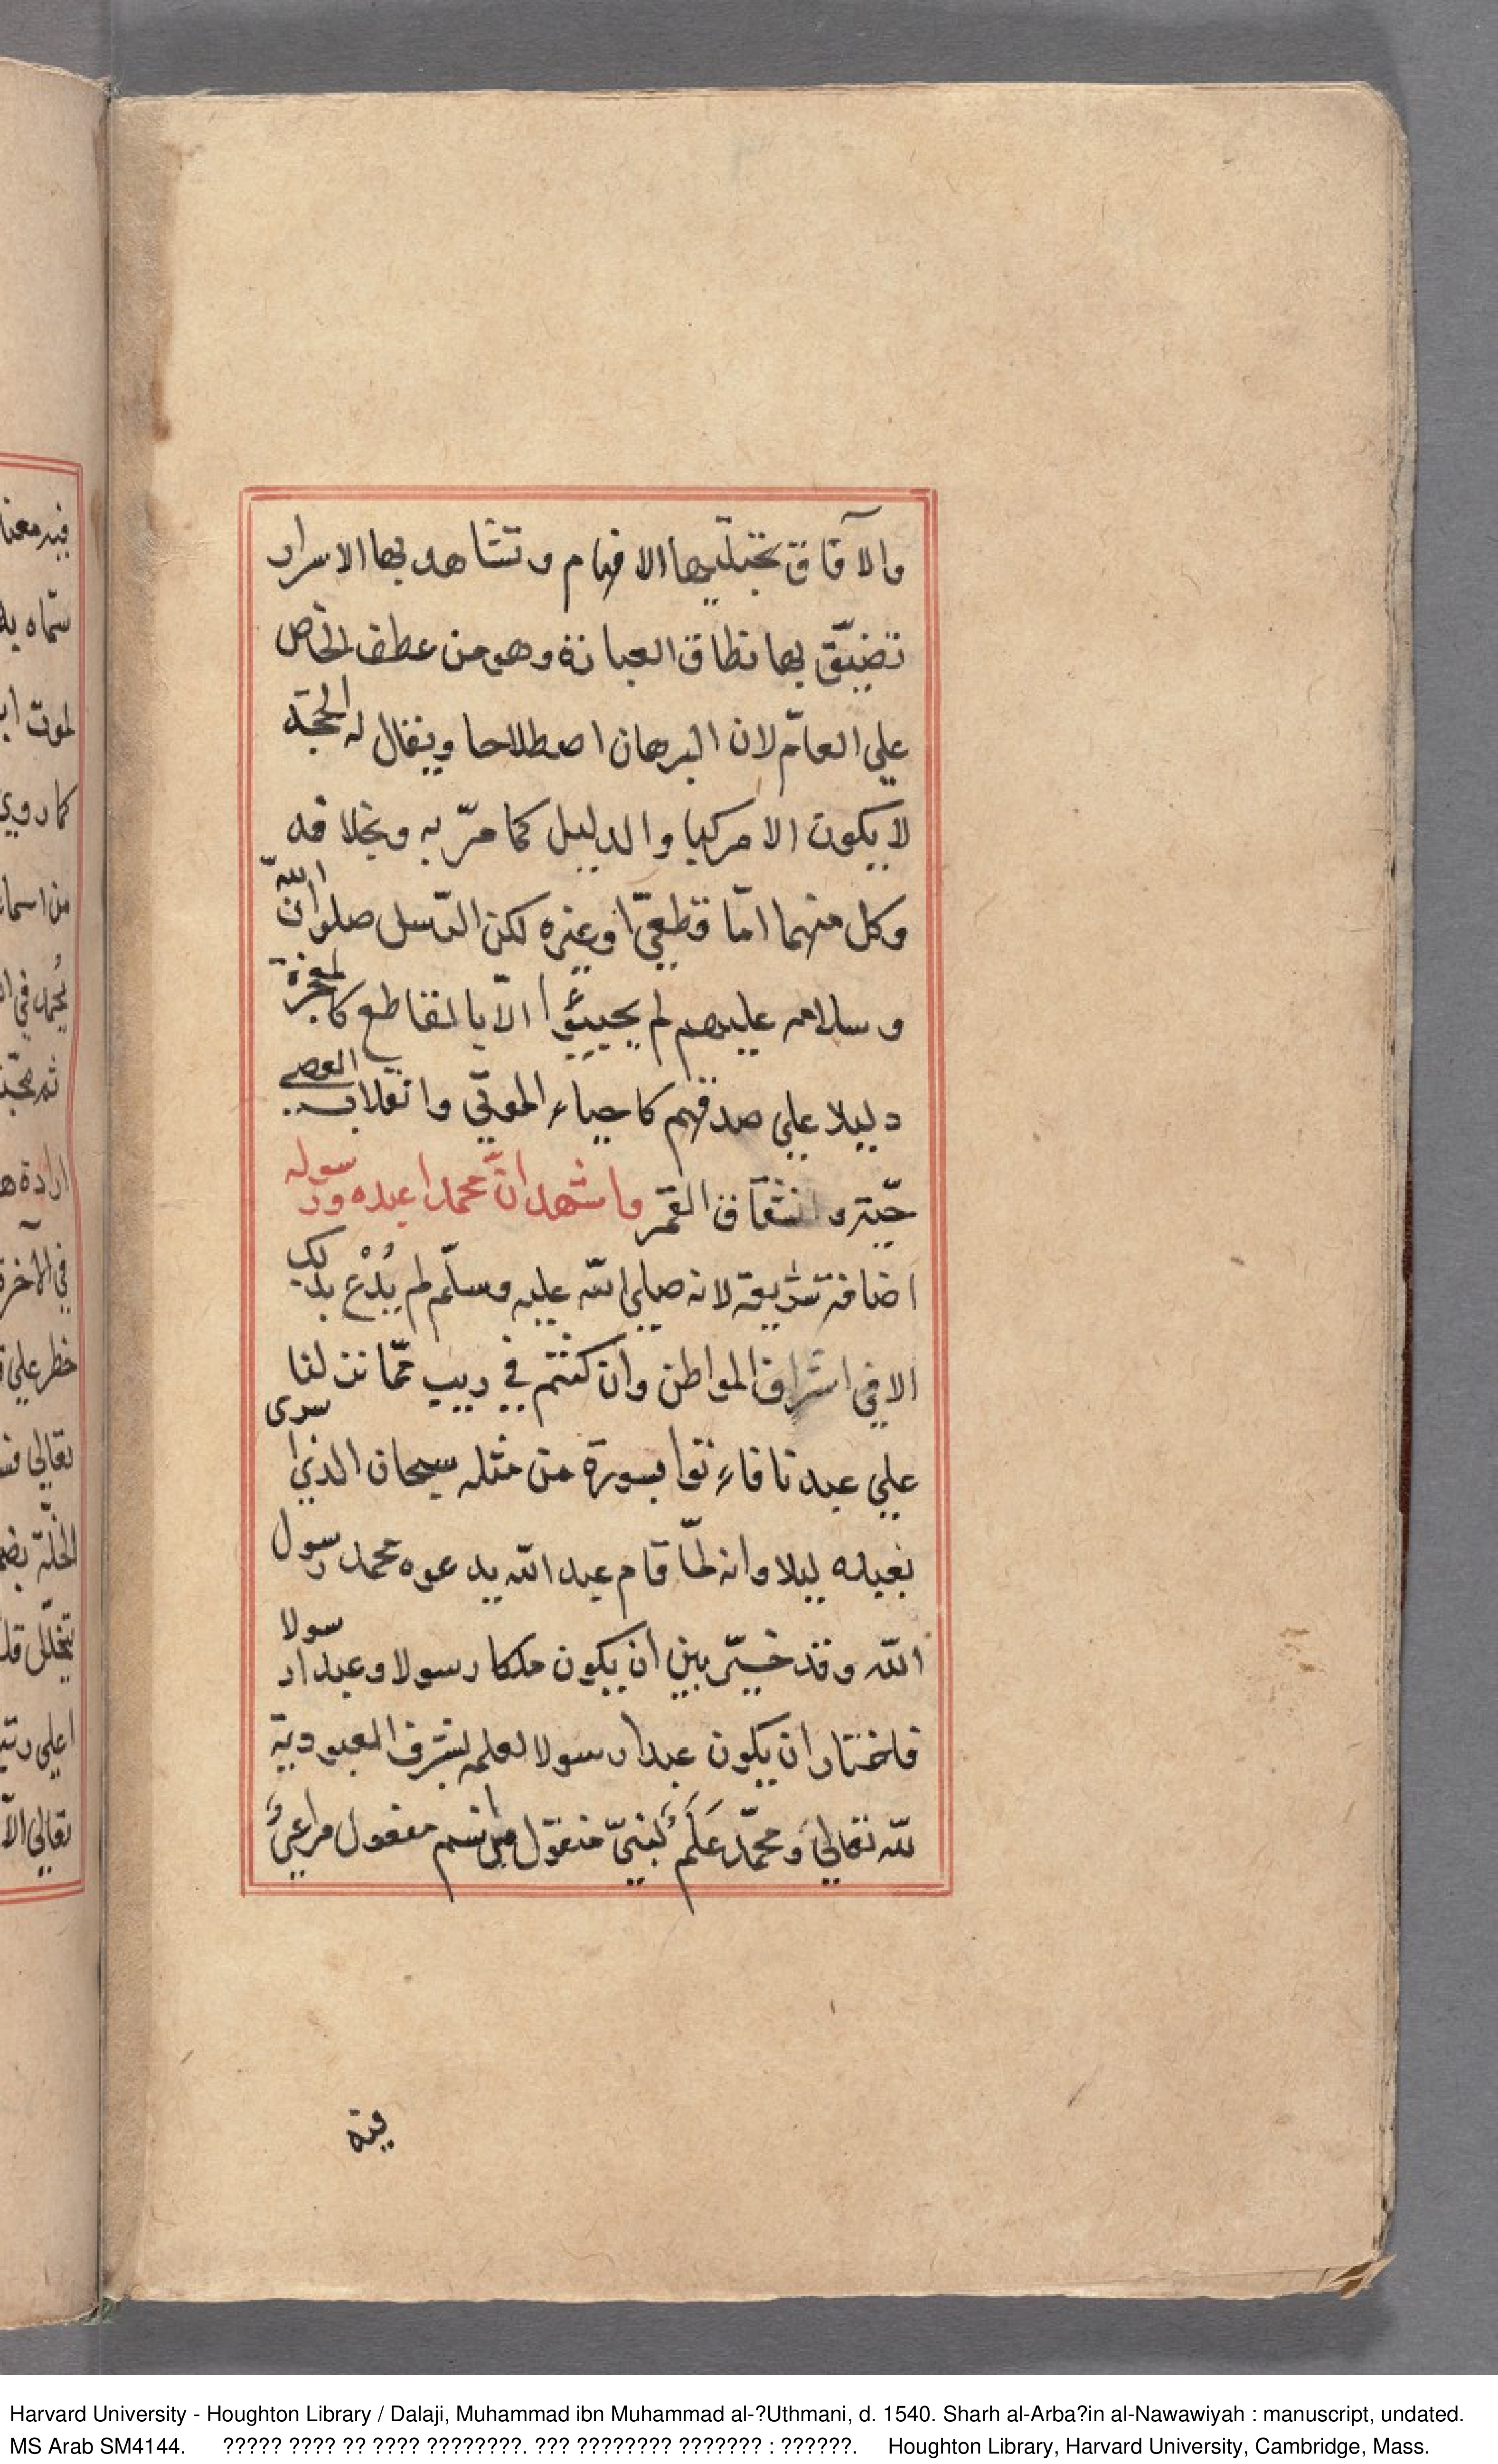 والآفاق تجتليها الافهام وتشاهد بها الاسرار
تضيّق بها نطاق العبارة وهو من عطف الخاص
علي العامّ لان البرهان اصطلاحا ويقال له الحجّة
لا يكون الا مركبا والدليل كما مرّ به وبخلافه
وكل منهما امّا قطعيّ او غيره لكن الرّسل صلوات اللّه
وسلامه عليهم لم يجييئوا الّا بالقاطع كالمعجزة
دليلا علي صدقهم كاحياء الموتي وانقلاب العصي
حيّة وانشقاق القمر واشهد انّ محمدا عبده ورسوله
اضافة تشريفة لانه صلي اللّه عليه وسلّم لم يُدْع بذلك
الا في اشراف المواطن وان كنتم في ريب ممّا نزلنا
علي عبدنا فاءتوا بسورة من مثله سبحان الذي اسرى
بعبده ليلا وانه لمّا قام عبد اللّه يدعوه محمد رسول
اللّه وقد خيّر بين ان يكون ملكا رسولا وعبدا رسولا
فاختار ان يكون عبدا رسولا لعلمه بشرف العبودية
للّه تعالي وَمحمّد عَلَمٌ لنبيّ منقول من اسم مفعول مراعيً
فيه
فيه معنا
سمّاه به
لموت
كما روي
من اسما
يُحمد في
ارادة
في الآخرة
خطر علي
تعالي
الخلّة
اعلي
تعالي الّا
Harvard University - Houghton Library / Dalaji, Muhammad ibn Muhammad al-?Uthmani, d. 1540. Sharh al-Arba?in al-Nawawiyah : manuscript, undated.
MS Arab SM4144. ????? ???? ?? ???? ????????. ??? ???????? ??????? : ??????. Houghton Library, Harvard University, Cambridge, Mass.